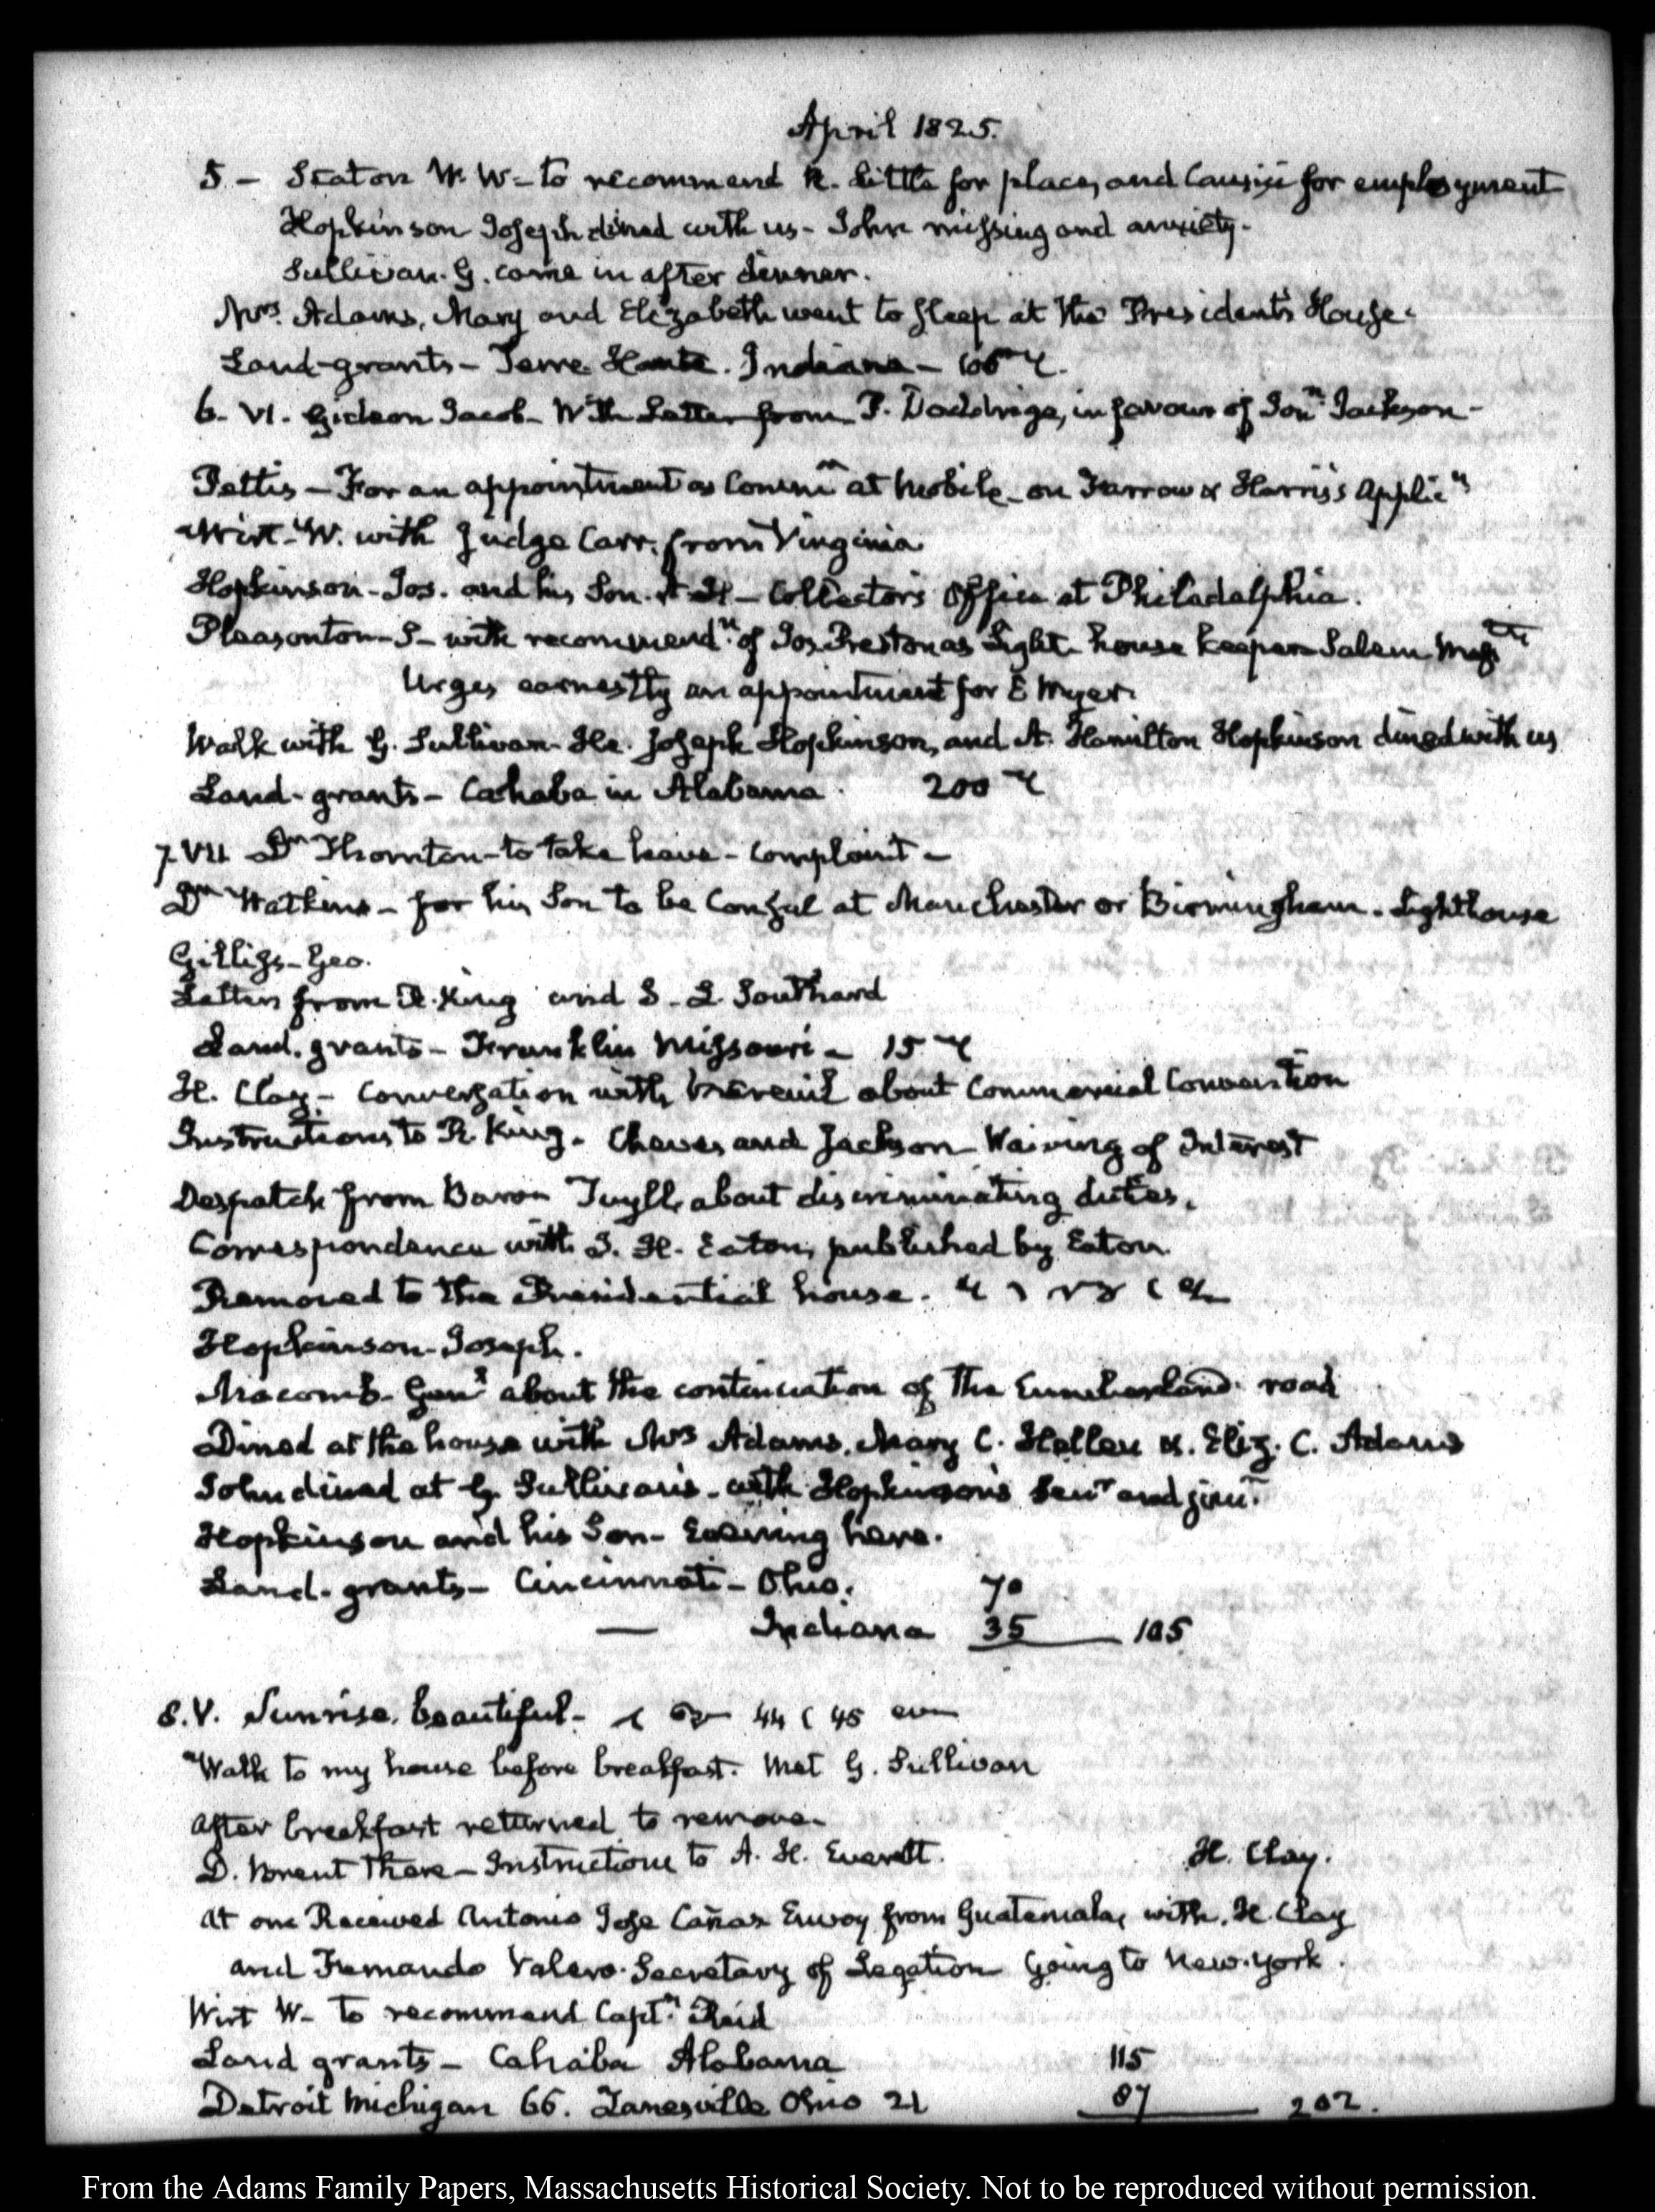 April 1825.
5 – Seaton W. W – to recommend R. Little for place, and Causici for employment
Hopkinson Joseph dined with us – John missing and anxiety.
Sullivan. G. came in after dinner.
Mrs. Adams, Mary and Elizabeth went to sleep at the President's House.
Land-grants – Terre Haute. Indiana –
6. VI. Gideon Jacob – With Letter from P. Doddridge, in favour of Jon.n Jackson –
Pettis – For an appointment as Comm.n at Mobile – on Farrow & Harris's Applic.n
Wirt – W. with Judge Carr. from Virginia
Hopkinson – Jos. and his Son. A H – Collectors Office at Philadelphia.
Pleasonton – S – with recommend.n of Jos. Preston as Light-house keeper Salem
Urges earnestly an appointment for E Myer.
Walk with G. Sullivan. He. Joseph Hopkinson, and A. Hamilton Hopkinson dined with us
Land-grants – Cahaba in Alabama. 200
7. VII Dr. Thornton – to take leave – Complaint –
Dr. Watkins – for his Son to be Consul at Manchester or Birmingham. Lighthouse
Gilliss – Geo.
Letters from R. King and S. L. Southard
Land-grants – Franklin Missouri – 15
H. Clay – Conversation with Mareuil about Commercial Convention
Instructions to R. King. Cheves and Jackson – Waiving of Interest
Despatch from Baron Tuyll, about discriminating duties.
Correspondence with J. H. Eaton, published by Eaton.
Removed to the Presidential house.
Hopkinson – Joseph.
Macomb – Gen.l about the continuation of the Cumberland road
Dined at the house with Mrs Adams, Mary C. Hellen &. Eliz. C. Adams
John dined at G. Sullivan's – with Hopkinsons Senr and junr.
Hopkinson and his Son – Evening here.
Land-grants – Cincinnati – Ohio. 70
— Indiana 35 — 105
8. V. Sunrise, beautiful – 44 ( 45
Walk to my house before breakfast. Met G. Sullivan
After breakfast returned to remove.
D. Brent there – Instructions to A. H. Everett. H. Clay.
At one Received Antonio Jose Cañaz Envoy from Guatemala, with, H. Clay
and Fernando Valero. Secretary of Legation going to New-York.
Wirt W – to recommend Capt.n Reid
Land grants – Cahaba Alabama 115
Detroit Michigan 66. Zanesville Ohio 21 87 — 202.
From the Adams Family Papers, Massachusetts Historical Society. Not to be reproduced without permission.